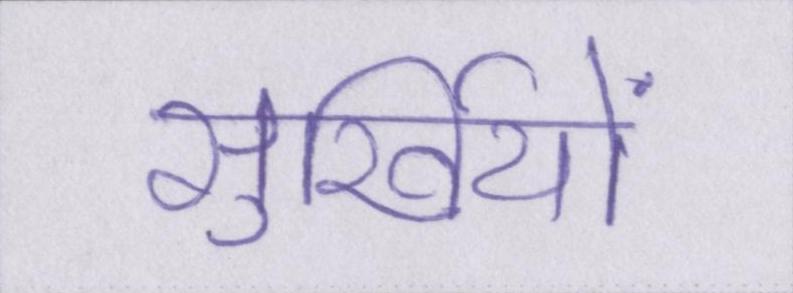 सुर्खियों